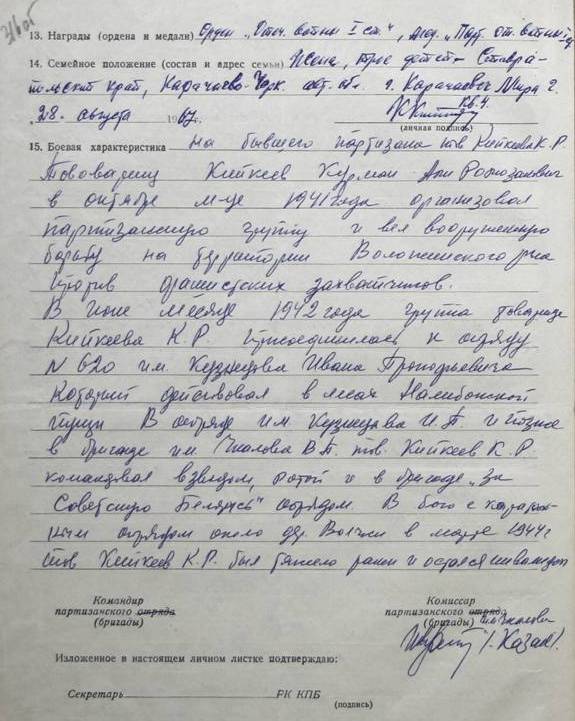 13. Награды (ордена и медали) Орден „Отеч. войны I ст.", мед. „Парт. от. войны I ст.
14. Семейное положение (состав и адрес семьи) Жена, трое детей - Ставро-
польский край, Карачаево-Черк. авт. обл. г. Карачаевск Мира 2
кв. 4.
„28„ августа 1967 г.
(личная подпись)
15. Боевая характеристика на бывшего партизана тов Кипкеева К.Р.
Товарищ Кипкеев Курман Али Рамазанович
в октябре м-це 1941 года организовал
партизанскую группу и вел вооруженную
борьбу на территории Воложинского р-на
против фашистских захватчиков.
В июне месяце 1942 года группа товарища
Кипкеева К.Р. присоединилась к отряду
N 620 им. Кузнецова Ивана Прокофьевича
который действовал в лесах Налибокской
пущи В отряде им Кузнецова И.П. и позже
в бригаде им Чкалова В.П. тов. Кипкеев К.Р.
командовал взводом, ротой и в бригаде „За
Советскую Беларусь" отрядом. В бою с каратель-
ным отрядом около дер. в марте 1944 г
тов Кипкеев К.Р. был тяжело ранен и остался инвалидом
Командир
партизанского отряда
(бригады)
Комиссар
партизанского отряда
(бригады) им Чкалова
/. Казак /.
Изложенное в настоящем личном листке подтверждаю:
Секретарь РК КПБ
(подпись)